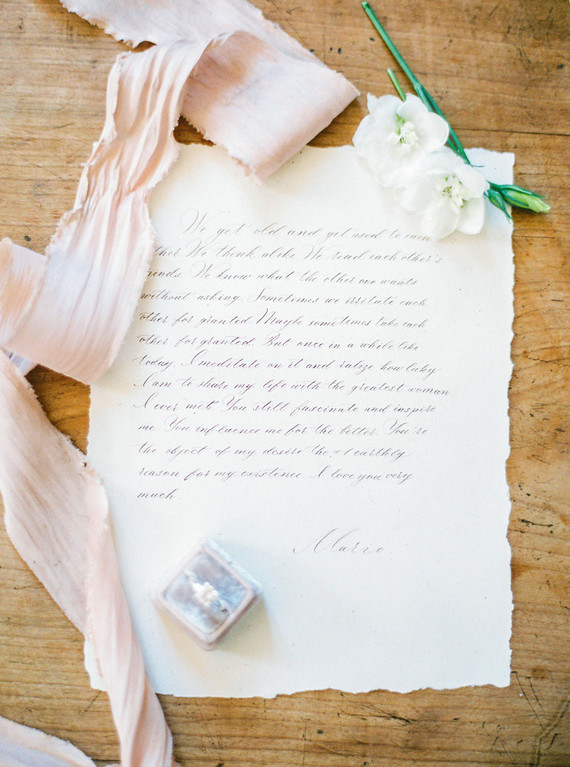 We get old and get used to each
other We think alike We read each other's
minds We know what the other one wants
without asking. Sometimes we irritate each
other for granted Maybe sometimes take each
other for granted. But once in a while like
today I meditate on it and ralize how lucky
I am to share my life with the greatest woman
I ever met You still fascinate and inspire
me You influence me for the better. You're
the object of my desire the #1 earthly
reason for my existence I love you very
much
Mario